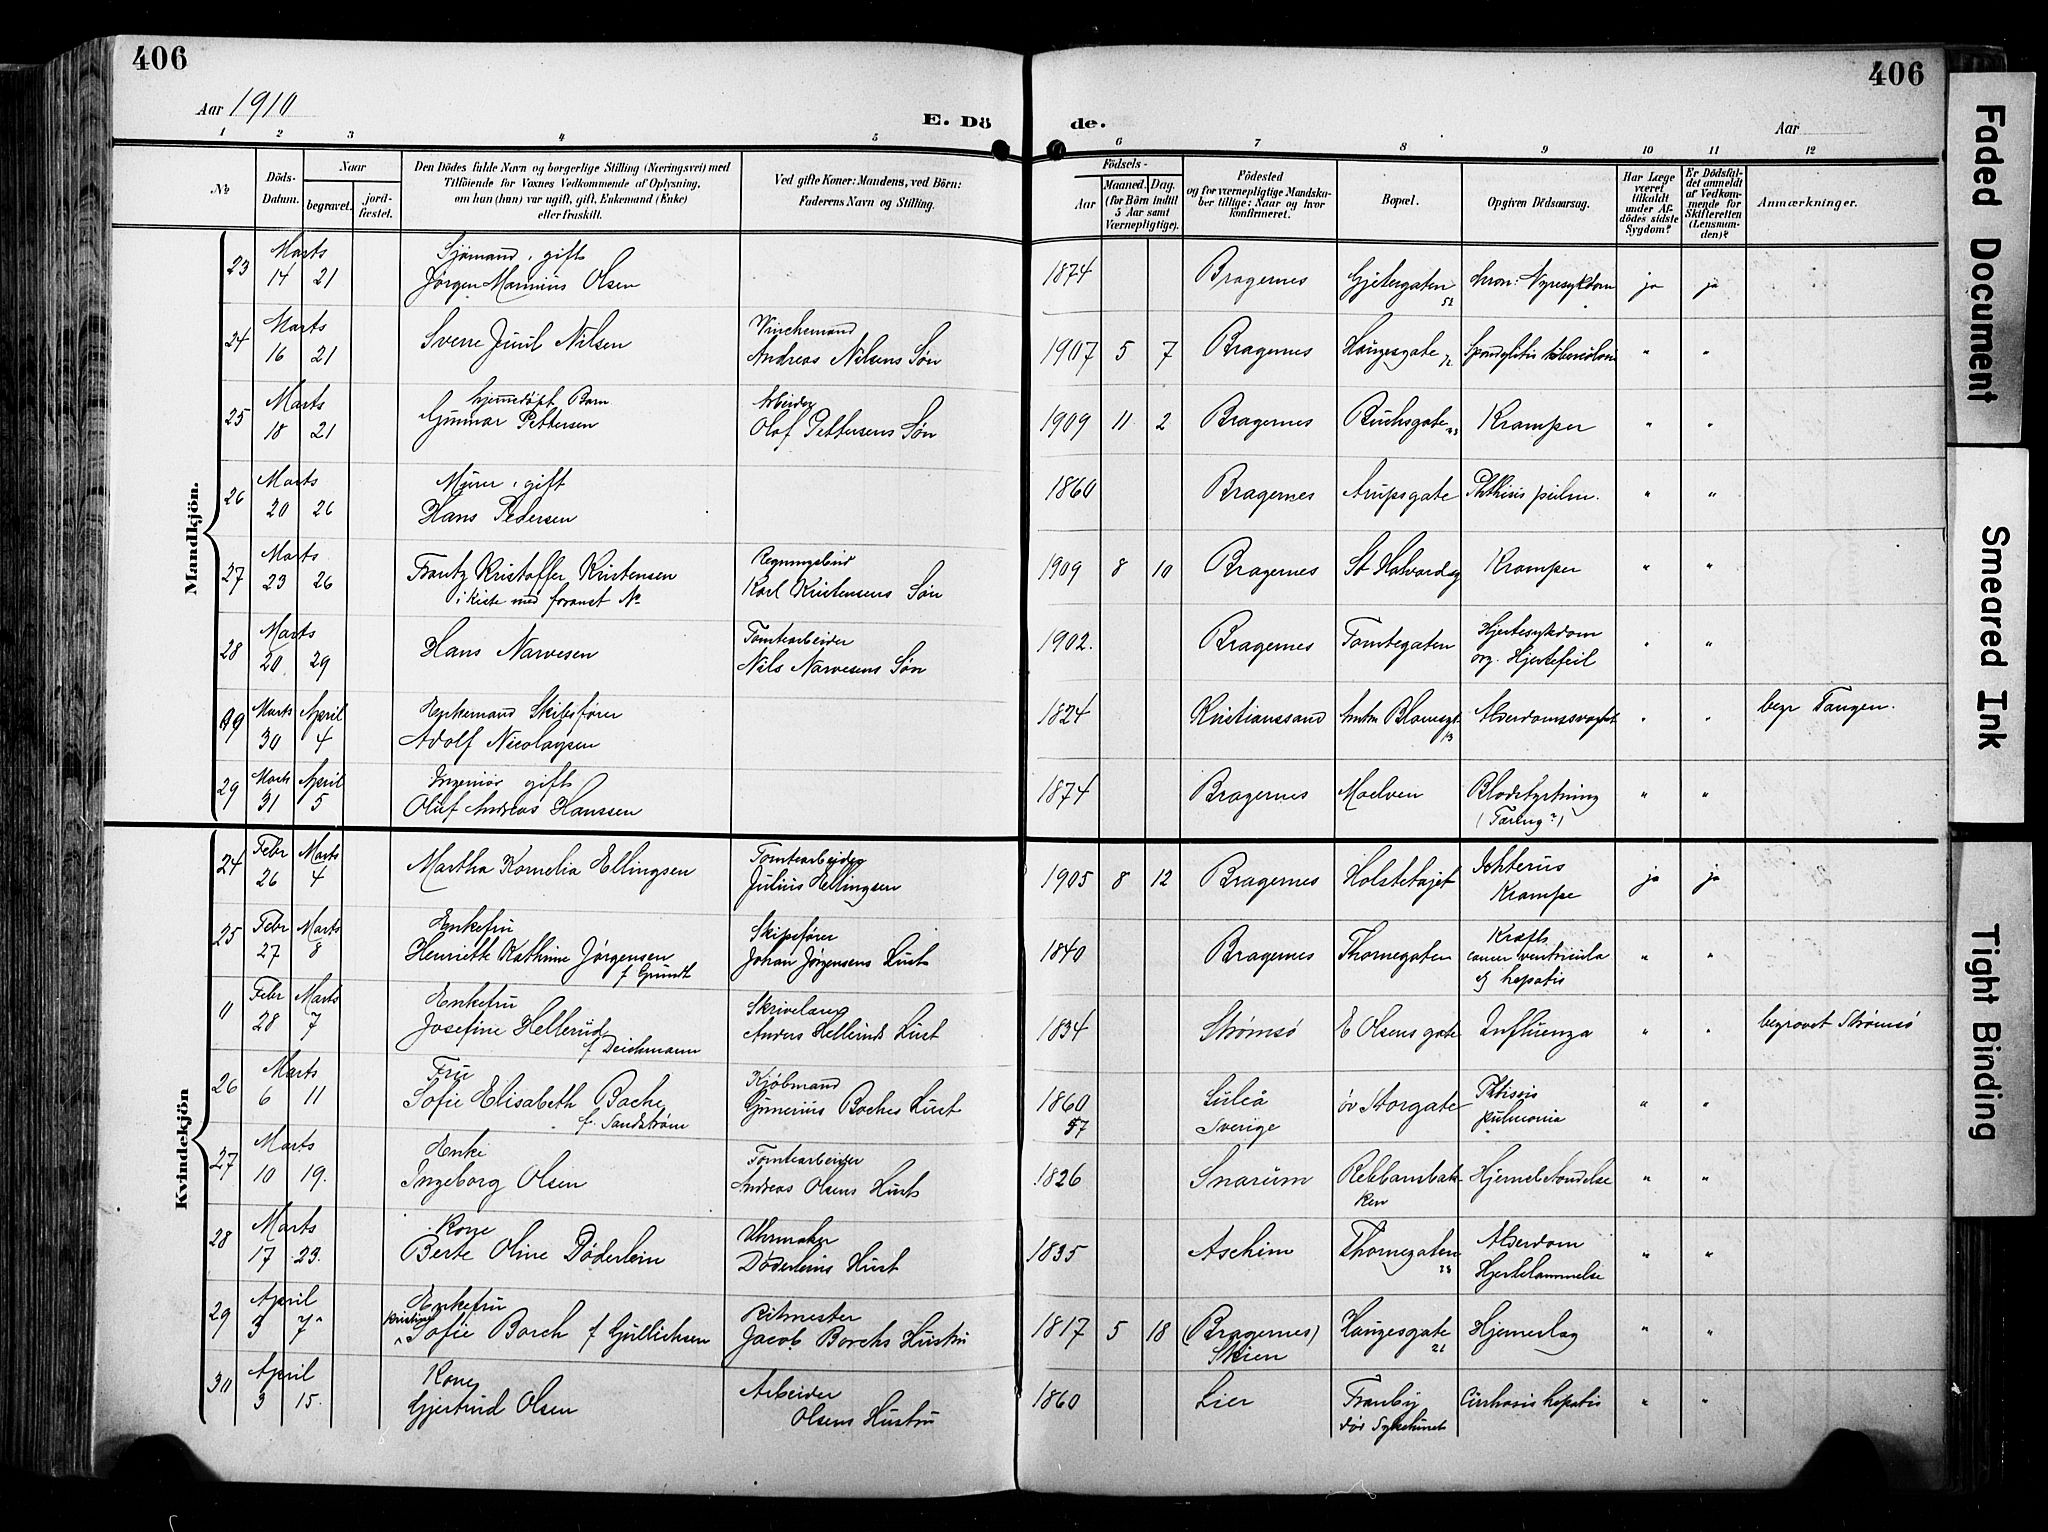 406
406
Aar 1910
E. Dö de.
Aar
1 2 3 4 5 6 7 8 9 10 11 12
No
Döds-Datum.
Naar
begravet.
jord-fæstet.
Den Dödes fulde Navn og borgerlige Stilling (Næringsvei) med
Tilföiende for Voxnes Vedkommende af Oplysning,
om hun (han) var ugift, gift, Enkemand (Enke)
eller fraskilt.
Ved gifte Koner: Mandens, ved Börn:
Faderens Navn og Stilling.
Födsels-
Aar
Maaned.
Dag.
(for Börn indtil
5 Aar samt
Værnepligtige).
Födested
og for værnepligtige Mandska-
ber tillige: Naar og hvor
konfirmeret.
Bopæl.
Opgiven Dödsaarsag.
Har Læge
været
tilkaldt
under Af-
dödes sidste
Sygdom?
Er Dödsfal-
det anmeldt
af Vedkom-
mende for
Skifteretten
(Lensman-
den)?
Anmærkninger.
Mandkjön.
23 Marts 14 21 Sjømand, gift
Jørgen Marinius Olsen 1874 Bragernes Gjetergaten 52 kron. Nyresykdom ja ja
24 Marts 16 21 Sverre Juul Nilsen Vinchemand
Andreas Nilsens Søn 1907 5 7 Bragernes Haugesgate " "
25 Marts 18 21 hjemmedøpt Barn
Gunnar Pettersen Arbeider
Olaf Pettersens Søn 1909 11 2 Bragernes Buchsgate Kramper " "
26 Marts 20 26 Murer, gift
Hans Pedersen 1860 Bragernes Arupsgate Phthisis pulm. " "
27 Marts 23 26 Frantz Kristoffer Kristensen
i kiste med foranst No
Karl Kristensens Søn 1909 8 10 Bragernes St Halvardsg Kramper " "
28 Marts 20 29 Hans Narvesen Tomtearbeider
Nils Narvesens Søn 1902. Bragernes Tomtegaten Hjertesykdom
org. Hjertefeil " "
Marts 30 April 4 Enkemand Skibsfører
Adolf Nicolaysen 1824 Kristianssand 13 " " begr Tangen.
29 Marts 31 April 5 Ingeniør gift
Oluf Andreas Hanssen 1874 Bragernes Maelven Blodstyrtning
(Tæring?) " "
Kvindekjön
24 Febr 26 Marts 4 Martha Kornelia Ellingsen Tomtearbeider
Julius Ellingsen 1905 8 12 Bragernes Holstetajet Ikterus
Krampe ja ja
25 Febr 27 Marts 8 Enkefru
Henriette Kathrine Jørgensen
f Grundt Skipsfører
Johan Jørgensens Hust 1840 Bragernes Thornegaten Kræft
cancer ventricula
og hepatis " "
11 Febr 28 Marts 7 Enkefru
Josefine Hellerud
f Deichmann
Anders Helleruds Hust 1834 Strømsø E Olsens gate Influenza " " begravet Strømsø
26 Marts 6 11 Fru
Sofie Elisabeth Bache
f. Sandstrøm Kjøbmand
Gunerius Baches Hust 1860
57 Luleå
Sverige øv Storgate Phtisis
pulmonia " "
27 Marts 10 19. Enke
Ingeborg Olsen Tomtearbeider
Andreas Olsens Hust 1826 Snarum Rebbansbak-
ken Hjernebetændelse " "
28 Marts 17 23. Kone
Berte Oline Døderlein Uhrmaker
Døderleins Hust 1835 Aschim Thornegaten Alderdom
Hjertelammelse " "
29 April 3 7 Enkefru
Kristine
Sofie Borch f Gullichsen Ritmester
Jacob Borchs Hustru 1817 5 18 (Bragernes)
Skien Haugesgate 21 Hjerneslag " "
30 April 3 15. Kone
Gjertrud Olsen Arbeider
Olsens Hustru 1860 Lier Tranby
dør Sykehuset Cirrhosis hepatis " "
Faded Document
Smeared Ink
Tight Binding